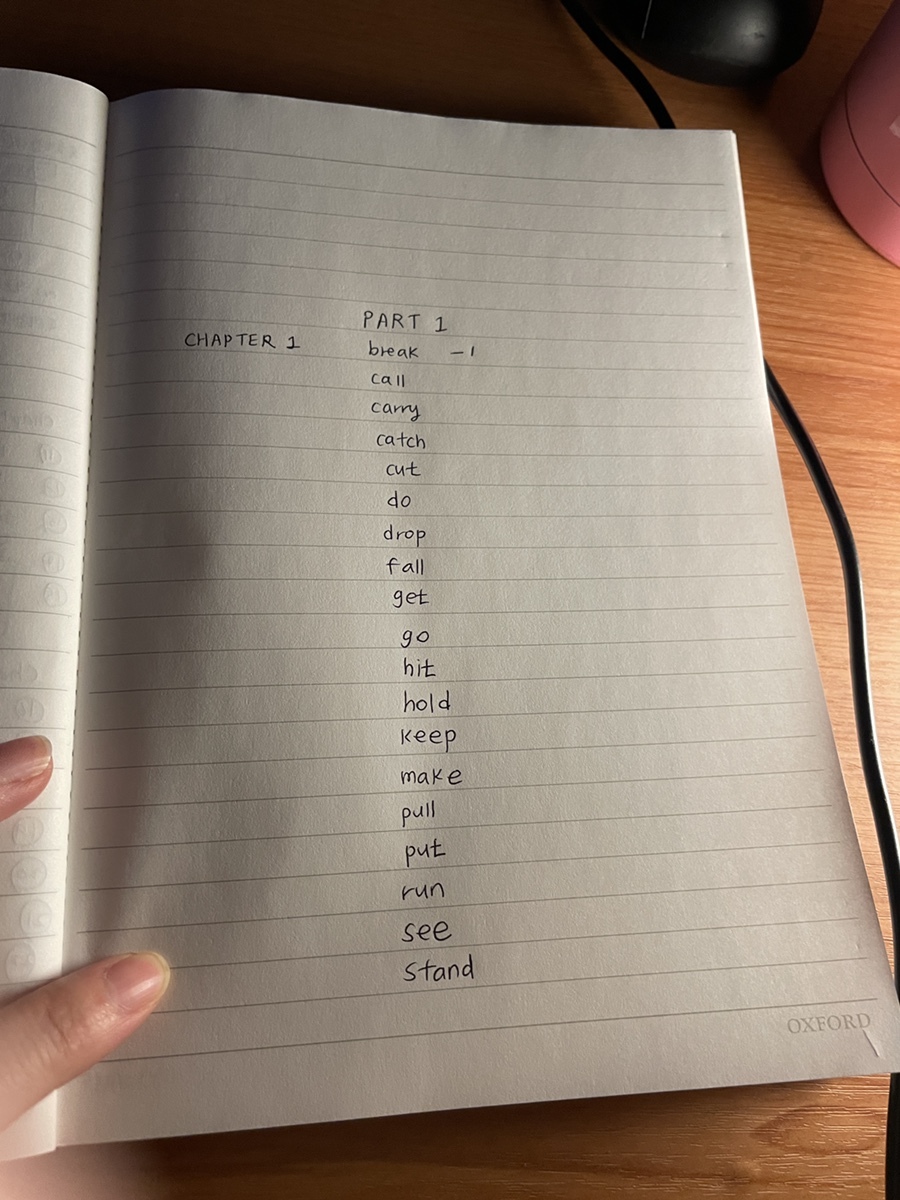 PART 1
CHAPTER 1
break - 1
call
carry
catch
cut
do
drop
fall
get
go
hit
hold
keep
make
pull
put
run
see
stand
OXFORD